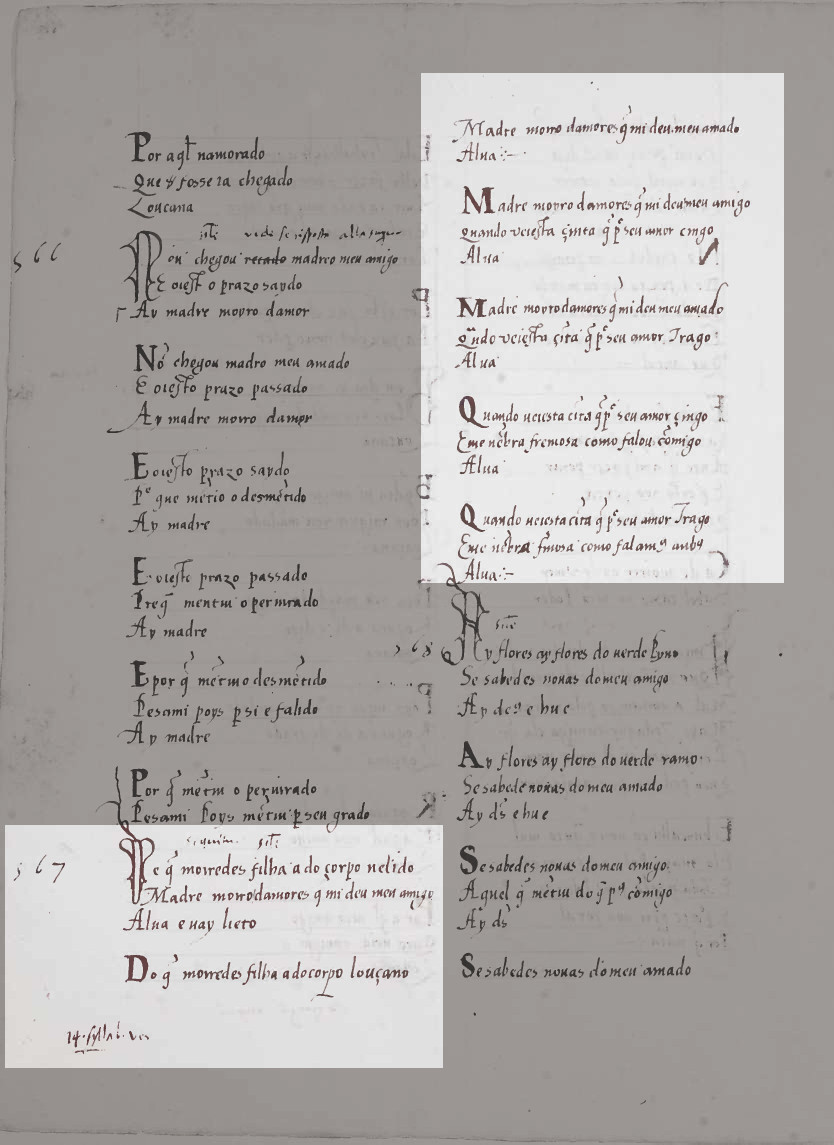 Por a q̄l namorado
Que fosse ia chegado
Louçana
566
Nõ chegou recado madre o meu amigo
E oiesto prazo saydo
Ay madre moyro damor
Nõ chegou madre meu amado
E oiesto prazo passado
Ay madre moiro damor
E oiesto prazo saydo
Pº que mētio o desmētido
Ay madre
E oiesto prazo passado
Preq̄ mentiu o periurado
Ay madre
E por q̄ mētiu o desmētido
Pesami poys p si e falido
Ay madre
Por q̄ mētiu o periurado
Pesami Poys mētiu p seu grado
567
De q̄ morredes filha a do corpo uelido
Madre moiro damores q̄ mi deu meu amigo
Alua e uay lieto
Do q̄ morredes filha a do corpo louçano
14. syllab. ver
Madre moiro damores q̄ mi deu meu amado
Alua
Madre moyro damores q̄ mi deu meu amigo
Quando veiesta çinta q̄ pº seu amor cingo
Alua
Madre moyro damores q̄ mi deu meu amado
Qũdo veiesta çīta q̄ pº seu amor Trago
Alua
Quando ueiesta cīta q̄ pº seu amor çingo
E me nēbra fremosa como falou comigo
Alua
Quando ueiesta cīta q̄ pº seu amor Trago
E me nēbra fmosa como falamꝰ anbꝰ
Alua
568
Ay flores ay flores do uerde Pyno
Se sabedes nouas do meu amigo
Ay deꝰ e hu e
Ay flores ay flores do uerde ramo
Se sabede nouas do meu amado
Ay ds e hu e
Se sabedes nouas do meu amigo
Aquel q̄ mētiu do q̄ pꝰ comigo
Ay ds
Se sabedes nouas do meu amado